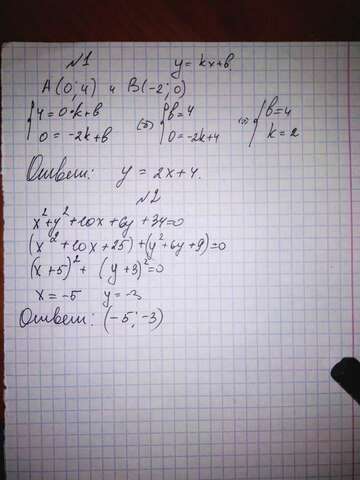 №1 y = kx+b.
A(0;4) и B(-2;0)
{4=0·k+b (=) {b=4 (=) {b=4
{0=-2k+b {0=-2k+4 {k=2
Ответ: y = 2x+4.
№2
x²+y²+10x+6y+34=0
(x²+10x+25)+(y²+6y+9)=0
(x+5)²+(y+3)²=0
x=-5 y=-3
Ответ: (-5;-3)